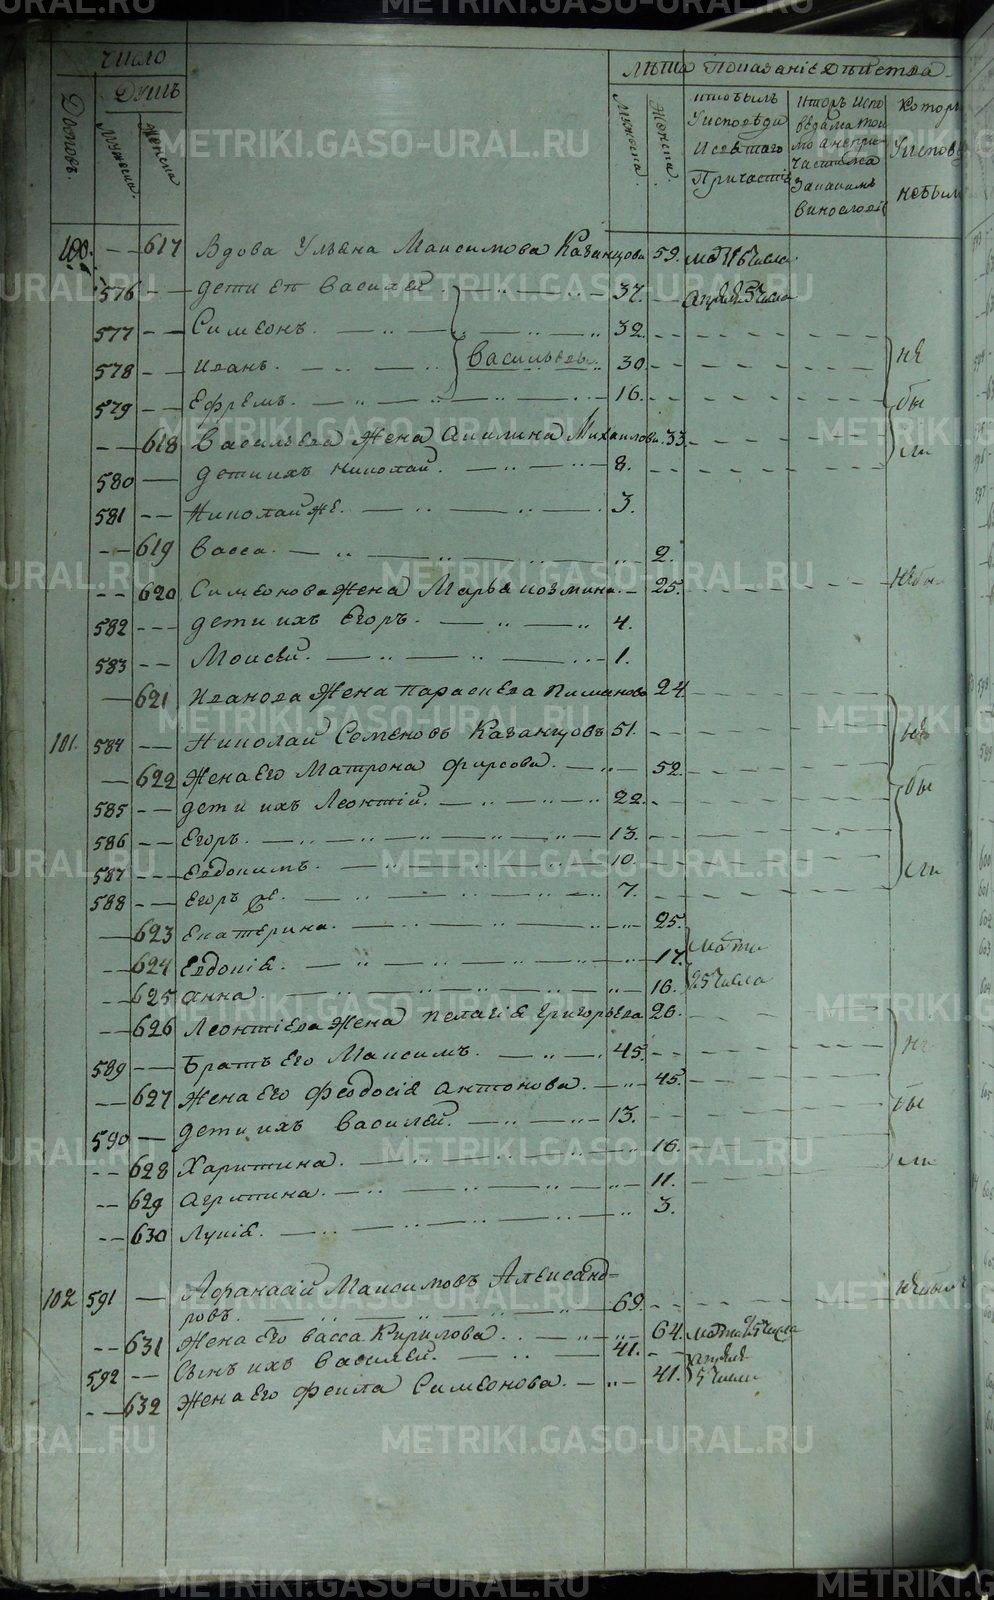 METRIKI.GASO-URAL.RU
Число
Душъ
Дворовъ.
Мужеска.
Женска
Лѣта
Показаніе дѣйства
Мужеска.
Женска.
кто былъ
У исповѣди
И святаго
Причастія
Которъ испо
ведался то
мо а непри
частился
За какимъ
винословіе
котор
У испов
небыл
100. — 617 Вдова Ульяна Максимова Казанцова 59. марта 25 числа
576 — дети ея Василей 37. апреля 5 числа
577 — Симеонъ. 32.
578 — Иванъ. Васильевы 30.
579 — Ефремъ. 16.
не
бы
ли
— 618 Васильева жена Акилина Михаилова. 33.
580 — дети ихъ Николай. 8.
581 — Николай же. 3.
— 619 Васса. 2.
— 620 Симеонова жена Марья Козмина. 25. небы
582 — дети ихъ Егоръ. 4.
583 — Моисей. 1.
— 621 Иванова жена Параскева Пиманова 24.
101. 584 — Николай Семеновъ Казанцовъ 51.
— 622 Жена его Матрона Фирсова. 52.
585 — дети ихъ Леонтій. 22.
586 — Егоръ. 13.
587 — Евдокимъ. 10.
588 — Егоръ же. 7.
не
бы
ли
— 623 Екатерина. 25.
— 624 Евдокія. 17.
— 625 Анна. 16.
марта
25 числа
— 626 Леонтіева жена Пелагія Григорьева 26.
589 — Братъ его Максимъ. 45.
— 627 Жена его Феодосія Антонова. 45.
590 — дети ихъ Василей. 13.
— 628 Харитина. 16.
— 629 Агрипина. 11.
— 630 Лукія. 3.
не
бы
ли
102 591 — Афанасій Максимовъ Александ=
ровъ. 69. небылъ
— 631 Жена его Васса Кирилова. 64. марта 25 числа
592 — Сынъ ихъ Василей. 41. апреля
— 632 Жена его Фекла Симеонова. 41. 5 числа